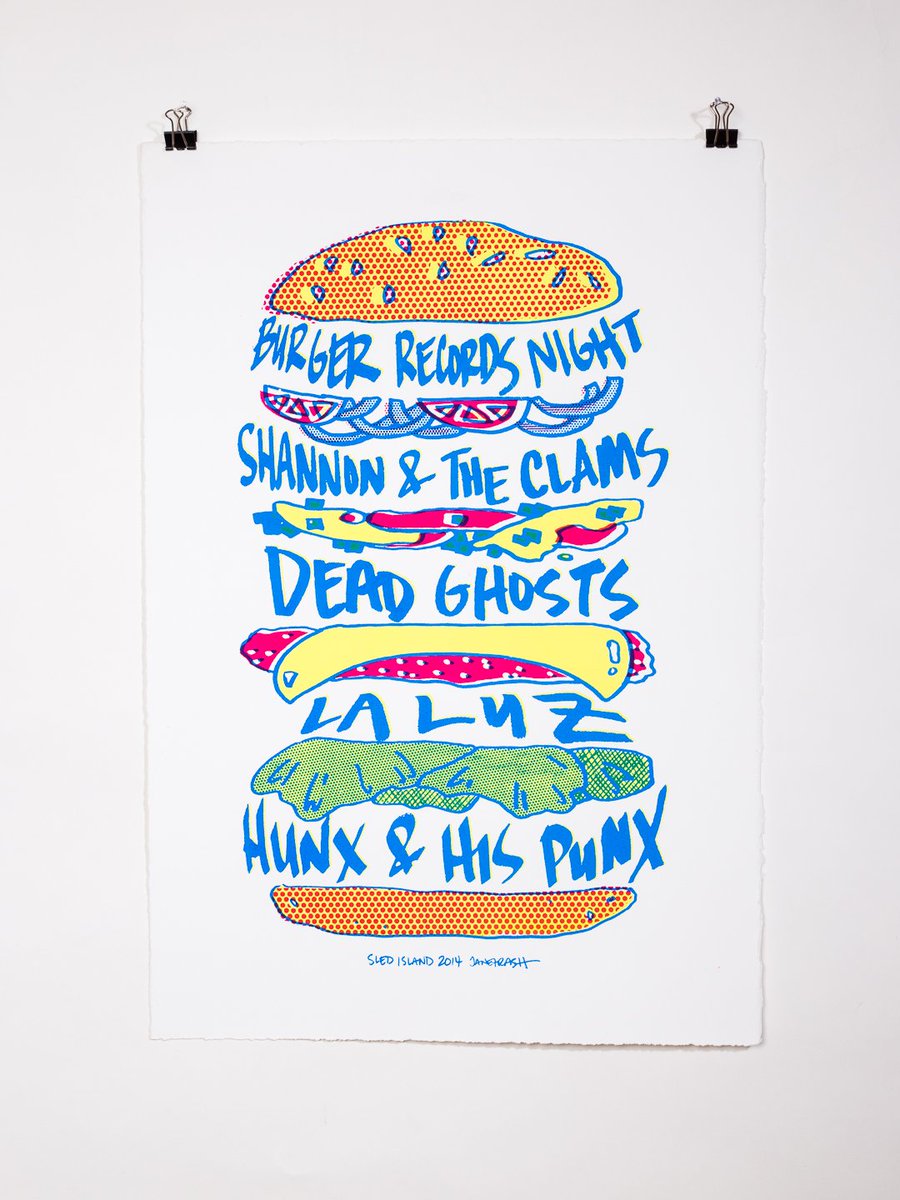 BURGER RECORDS NIGHT
SHANNON & THE CLAMS
DEAD GHOSTS
LA LUZ
HUNX & HIS PUNX
SLED ISLAND 2014 JANETRASH